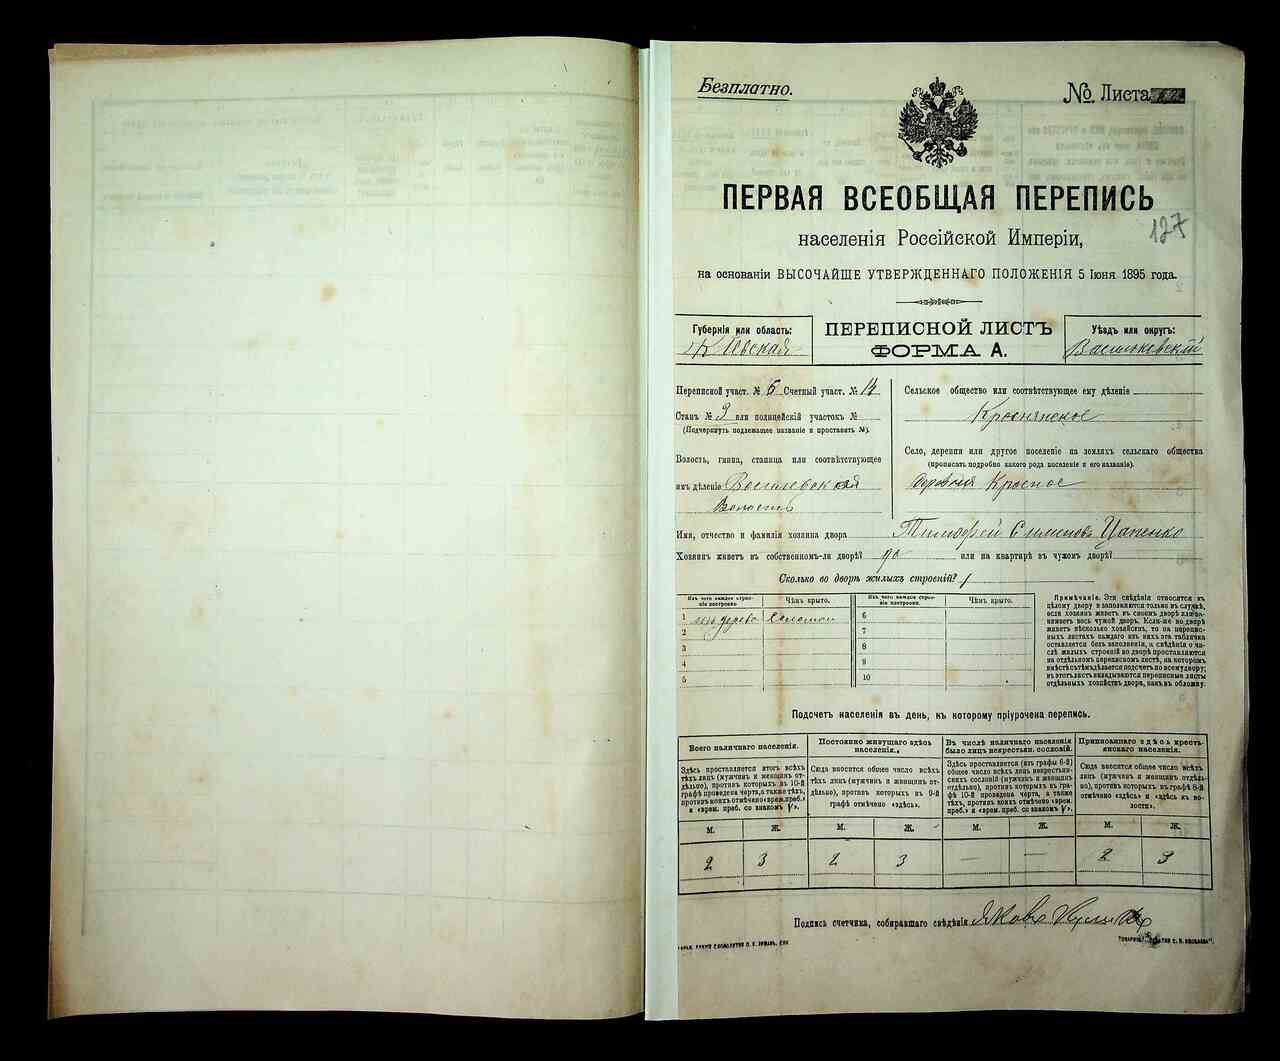 Безплатно.
№ Листа
ПЕРВАЯ ВСЕОБЩАЯ ПЕРЕПИСЬ
127
населенія Россійской Имперіи,
на основаніи ВЫСОЧАЙШЕ УТВЕРЖДЕННАГО ПОЛОЖЕНІЯ 5 Іюня 1895 года.
Губернія или область:
Кіевская
ПЕРЕПИСНОЙ ЛИСТЪ
ФОРМА А.
Уѣздъ или округъ:
Васильковскій
Переписной участ. № 6 Счетный участ. № 14
Станъ № 3 или полицейскій участокъ №
(Подчеркнуть подлежащее названіе и проставить №).
Волость, гмина, станица или соотвѣтствующее
имъ дѣленіе
Волость
Сельское общество или соотвѣтствующее ему дѣленіе
Краснянское
Село, деревня или другое поселеніе на земляхъ сельскаго общества
(прописать подробно какого рода поселеніе и его названіе).
деревня Красное
Имя, отчество и фамилія хозяина двора Тимофей Симеоновъ Цапенко
Хозяинъ живетъ въ собственномъ-ли дворѣ? да или на квартирѣ въ чужомъ дворѣ?
Сколько во дворѣ жилыхъ строеній? 1
Изъ чего каждое строеніе построено. Чѣмъ крыто.
1 изъ дерева Соломой
2
3
4
5
Изъ чего каждое строеніе построено. Чѣмъ крыто.
6
7
8
9
10
Примѣчаніе. Эти свѣдѣнія относятся къ
цѣлому двору и заполняются только въ случаѣ,
если хозяинъ живетъ въ своемъ дворѣ или занимаетъ
весь чужой дворъ. Если-же во дворѣ
живетъ нѣсколько хозяйствъ, то на переписныхъ
листахъ каждаго изъ нихъ эта табличка
оставляется безъ заполненія, а свѣдѣнія о числѣ
жилыхъ строеній во дворѣ проставляются
на отдѣльномъ переписномъ листѣ, на которомъ
вмѣстѣ съ тѣмъ дѣлается подсчетъ по всему двору;
въ этотъ листъ вкладываются переписные листы
отдѣльныхъ хозяйствъ двора, какъ въ обложку.
Подсчетъ населенія въ день, къ которому пріурочена перепись.
Всего наличнаго населенія.
Здѣсь проставляется итогъ всѣхъ
тѣхъ лицъ (мужчинъ и женщинъ отдѣльно),
противъ которыхъ въ 10-й
графѣ проведена черта, а также тѣхъ,
противъ коихъ отмѣчено «врем. преб.»
и «врем. преб. со знакомъ V».
М. Ж.
2 3
Постоянно живущаго здѣсь
населенія.
Сюда вносится общее число всѣхъ
тѣхъ лицъ (мужчинъ и женщинъ отдѣльно),
противъ которыхъ въ 9-й
графѣ отмѣчено «здѣсь».
М. Ж.
2 3
Въ числѣ наличнаго населенія
было лицъ некрестьян. сословій.
Здѣсь проставляется (изъ графы 6-й)
общее число всѣхъ лицъ некрестьянскихъ
сословій (мужчинъ и женщинъ
отдѣльно), противъ которыхъ въ графѣ
10-й проведена черта, а также
тѣхъ, противъ коихъ отмѣчено «врем.
преб.» и «врем. преб. со знакомъ V».
М. Ж.
— —
Приписаннаго здѣсь крестьянскаго
населенія.
Сюда вносится общее число всѣхъ
лицъ (мужчинъ и женщинъ отдѣльно),
противъ которыхъ въ графѣ 8-й
отмѣчено «здѣсь» и «здѣсь къ волости».
М. Ж.
2 3
Подпись счетчика, собиравшаго свѣдѣнія Яковъ